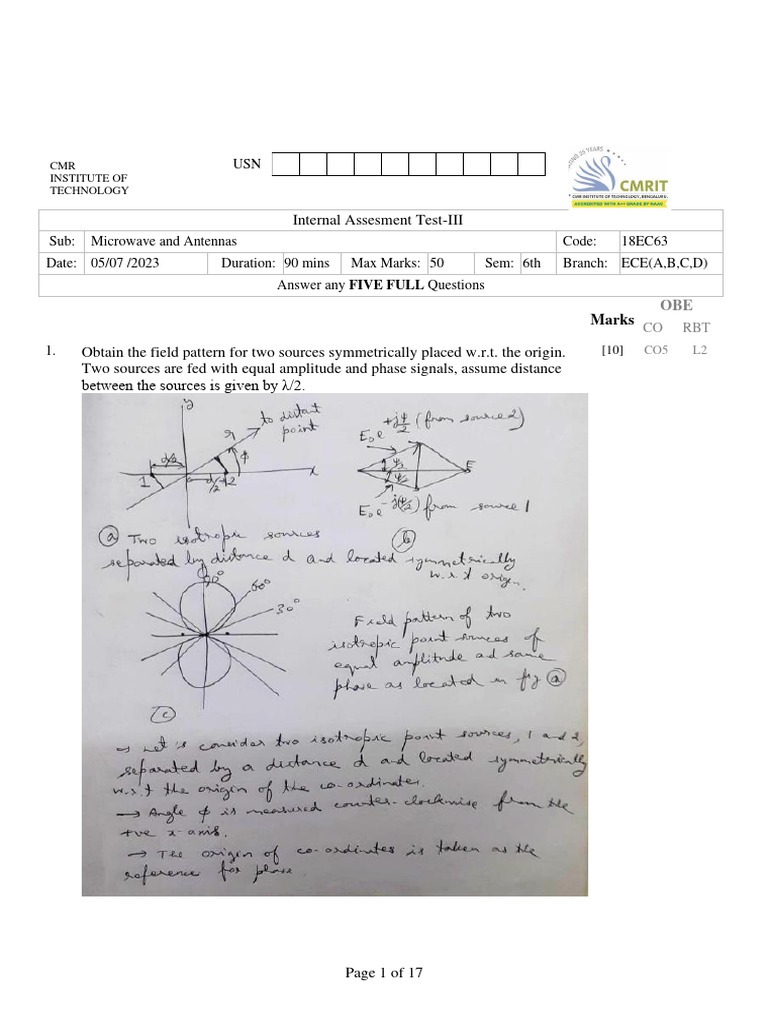 CMR
INSTITUTE OF
TECHNOLOGY
USN
CMRIT
* CMR INSTITUTE OF TECHNOLOGY, BENGALURU.
ACCREDITED WITH A++ GRADE BY NAAC
Internal Assesment Test-III
Sub: Microwave and Antennas Code: 18EC63
Date: 05/07 /2023 Duration: 90 mins Max Marks: 50 Sem: 6th Branch: ECE(A,B,C,D)
Answer any FIVE FULL Questions
Marks OBE
CO RBT
1. Obtain the field pattern for two sources symmetrically placed w.r.t. the origin. [10] CO5 L2
Two sources are fed with equal amplitude and phase signals, assume distance
between the sources is given by λ/2.
y
to distant
point
r
ϕ
d/2
x
1
d/2
2
E₀e^{+jψ/2} (from source 2)
ψ/2
ψ/2
E
E₀e^{-j(ψ/2)} from source 1
(a) Two isotropic sources
separated by distance d and located symmetrically
w.r.t origin.
(b)
90°
60°
30°
Field pattern of two
isotropic point sources of
equal amplitude ad same
phase as located in fig (a)
(c)
→ Let's consider two isotropic point sources, 1 and 2,
separated by a distance d and located symmetrically
w.r.t the origin of the co-ordinates.
→ Angle ϕ is measured counter-clockwise from the
+ve x-axis.
→ The origin of co-ordinates is taken as the
reference for phase
Page 1 of 17